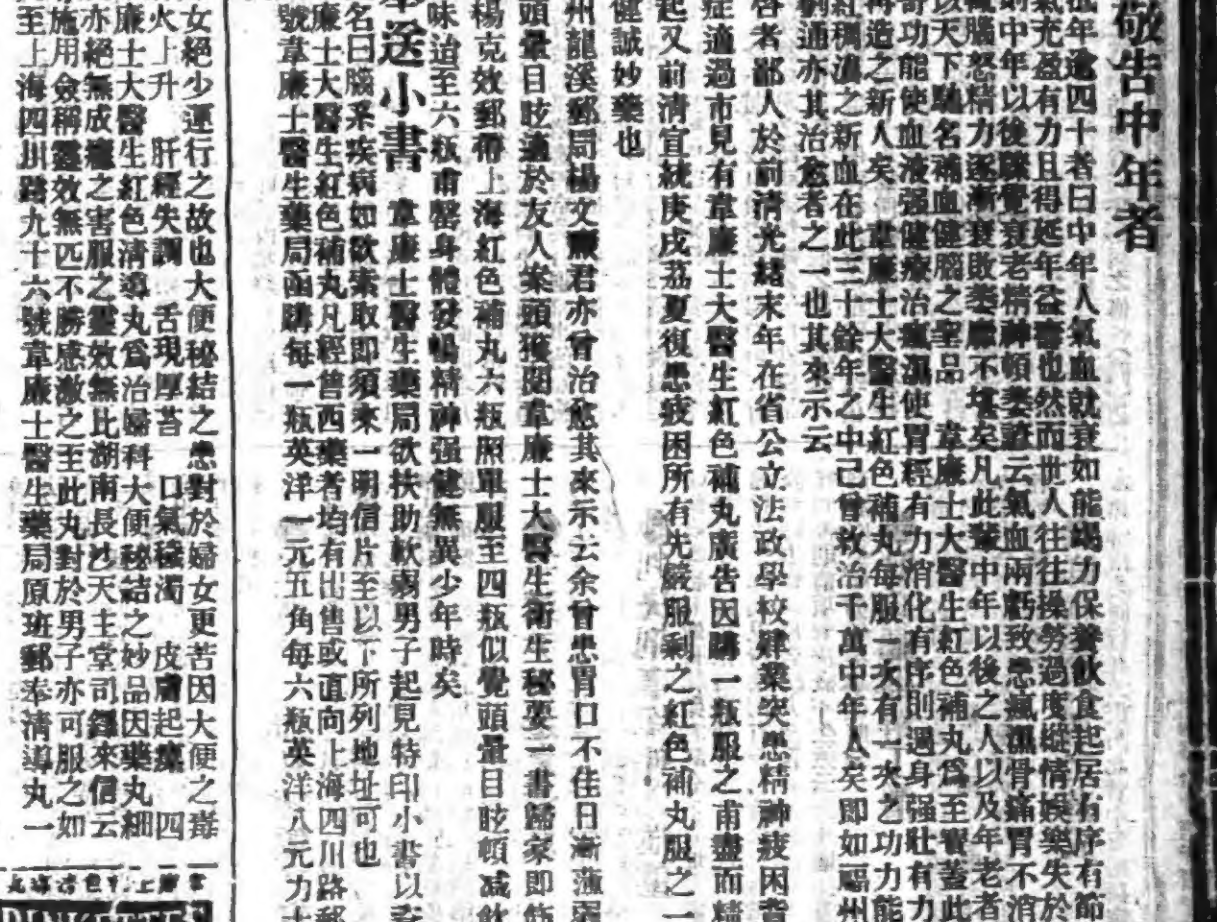 敬告中年者
年逾四十者曰中年人氣血就衰如能竭力保養飲食起居有序有節
氣充盈有力且得延年益壽也然而世人往往操勞過度縱情娛樂失於
則中年以後驟覺衰老精神頓委諺云氣血兩虧致患瘋濕骨痛胃不消
腦怒精力逐漸衰敗萎靡不堪矣凡此輩中年以後之人以及年老者
以天下馳名補血健腦之聖品 韋廉士大醫生紅色補丸為至寶蓋此
奇功能使血液强健療治瘋濕使胃經有力消化有序則週身强壯有力
再造之新人矣 韋廉士大醫生紅色補丸每服一次有一次之功力能
紅稠濃之新血在此三十餘年之中已曾救治千萬中年人矣即如福州
通亦其治愈者之一也其來示云
啓者鄙人於前清光緒末年在省公立法政學校肄業突患精神疲困
症適過市見有韋廉士大醫生紅色補丸廣告因購一瓶服之甫盡而精
起又前清宣統庚戌荔夏復患疲困所有先嚴服剩之紅色補丸服之一
健誠妙藥也
州龍溪郵局楊文 君亦曾治愈其來示云余曾患胃口不佳日漸薄弱
頭暈目眩適於友人案頭獲閱韋廉士大醫生衛生秘要一書歸家即飭
楊克效郵帶上海紅色補丸六瓶照單服至四瓶似覺頭暈目眩頓减飲
味迨至六瓶甫罄身體發暢精神强健無異少年時矣
奉送小書 韋廉士醫生藥局欲扶助軟弱男子起見特印小書以
名曰腦系疾病如欲索取即須來一明信片至以下所列地址可也
廉士大醫生紅色補丸凡經售西藥者均有出售或直向上海四川路
號韋廉士醫生藥局函購每一瓶英洋一元五角每六瓶英洋八元力
女絕少運行之故也大便秘結之患對於婦女更苦因大便之毒
火上升 肝經失調 舌現厚苔 口氣穢濁 皮膚起 四
廉士大醫生紅色清導丸為治婦科大便秘結之妙品因藥丸細
亦絕無成癮之害服之靈效無比湖南長沙天主堂司鐸來信云
施用僉稱靈效無匹不勝感激之至此丸對於男子亦可服之如
至上海四川路九十六號韋廉士醫生藥局原班郵奉清導丸一
PINKETTES